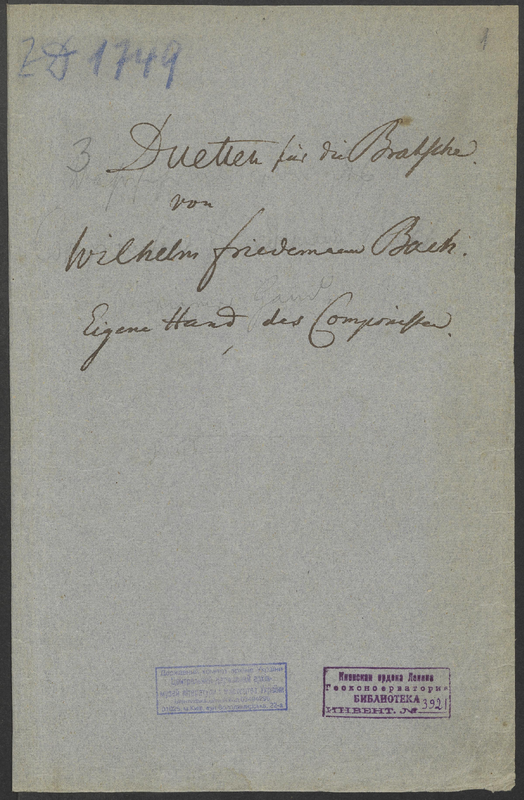 ZD 1749
1
3 Duetten für die Bratsche.
von
Wilhelm Friedemann Bach.
Eigene Hand des Componisten.
Киевская ордена Ленина
Госконсерватория
БИБЛИОТЕКА
ИНВЕНТ. № 3921